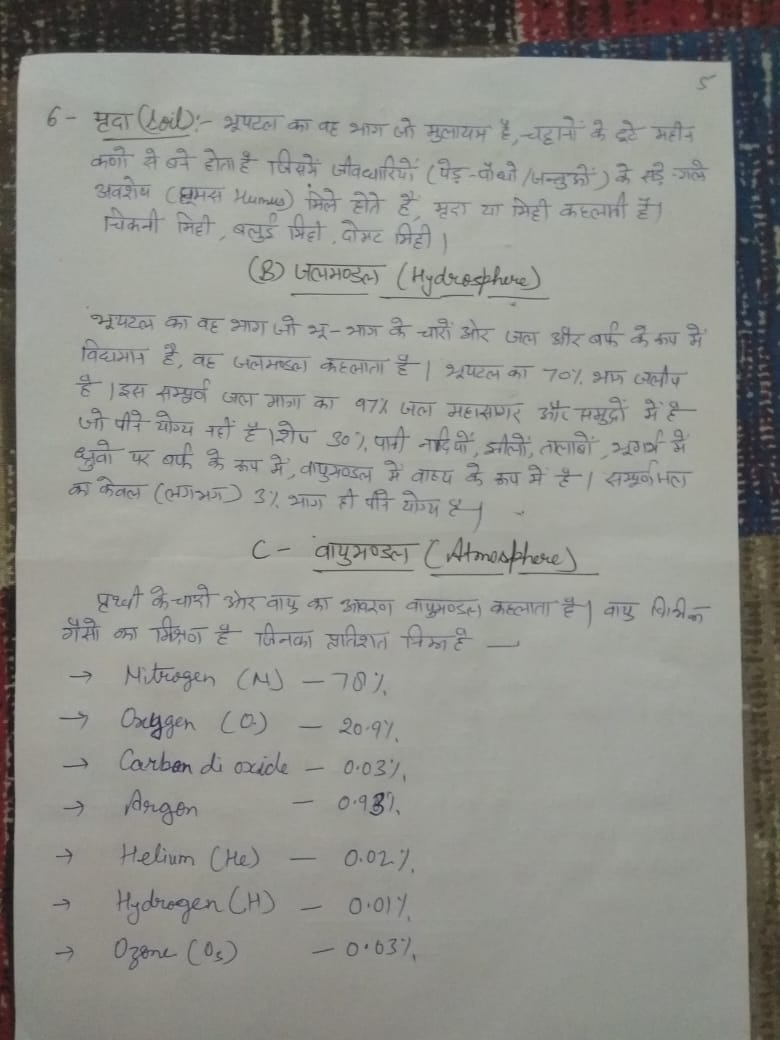 5
6- मृदा (Soil):- भूपटल का वह भाग जो मुलायम है, चट्टानों के टूटे महीन
कणों से बने होता है जिसमें जीवधारियों (पेड़-पौधो/जन्तुओं) के सड़े-गले
अवशेष (ह्यूमस Humus) मिले होते है, मृदा या मिट्टी कहलाती है।
चिकनी मिट्टी, बलुई मिट्टी, दोमट मिट्टी।
(B) जलमण्डल (Hydrosphere)
भूपटल का वह भाग जो भू-भाग के चारों ओर जल और बर्फ के रूप में
विद्यमान है, वह जलमण्डल कहलाता है। भूपटल का 70% भाग जलीय
है। इस सम्पूर्ण जल मात्रा का 97% जल महासागर और समुद्रों में है
जो पीने योग्य नहीं है। शेष 30% पानी नदियों, झीलों, तालाबों, भूगर्भ में
ध्रुवो पर बर्फ के रूप में, वायुमण्डल में वाष्प के रूप में है। सम्पूर्ण जल
का केवल (लगभग) 3% भाग ही पीने योग्य है।
C- वायुमण्डल (Atmosphere)
पृथ्वी के चारो ओर वायु का आवरण वायुमण्डल कहलाता है। वायु विभिन्न
गैसो का मिश्रण है जिनका प्रतिशत निम्न है —
→ Nitrogen (N) – 78%
→ Oxygen (O) – 20.9%
→ Carbon di oxide – 0.03%
→ Argon – 0.93%
→ Helium (He) – 0.02%
→ Hydrogen (H) – 0.01%
→ Ozone (O3) – 0.03%